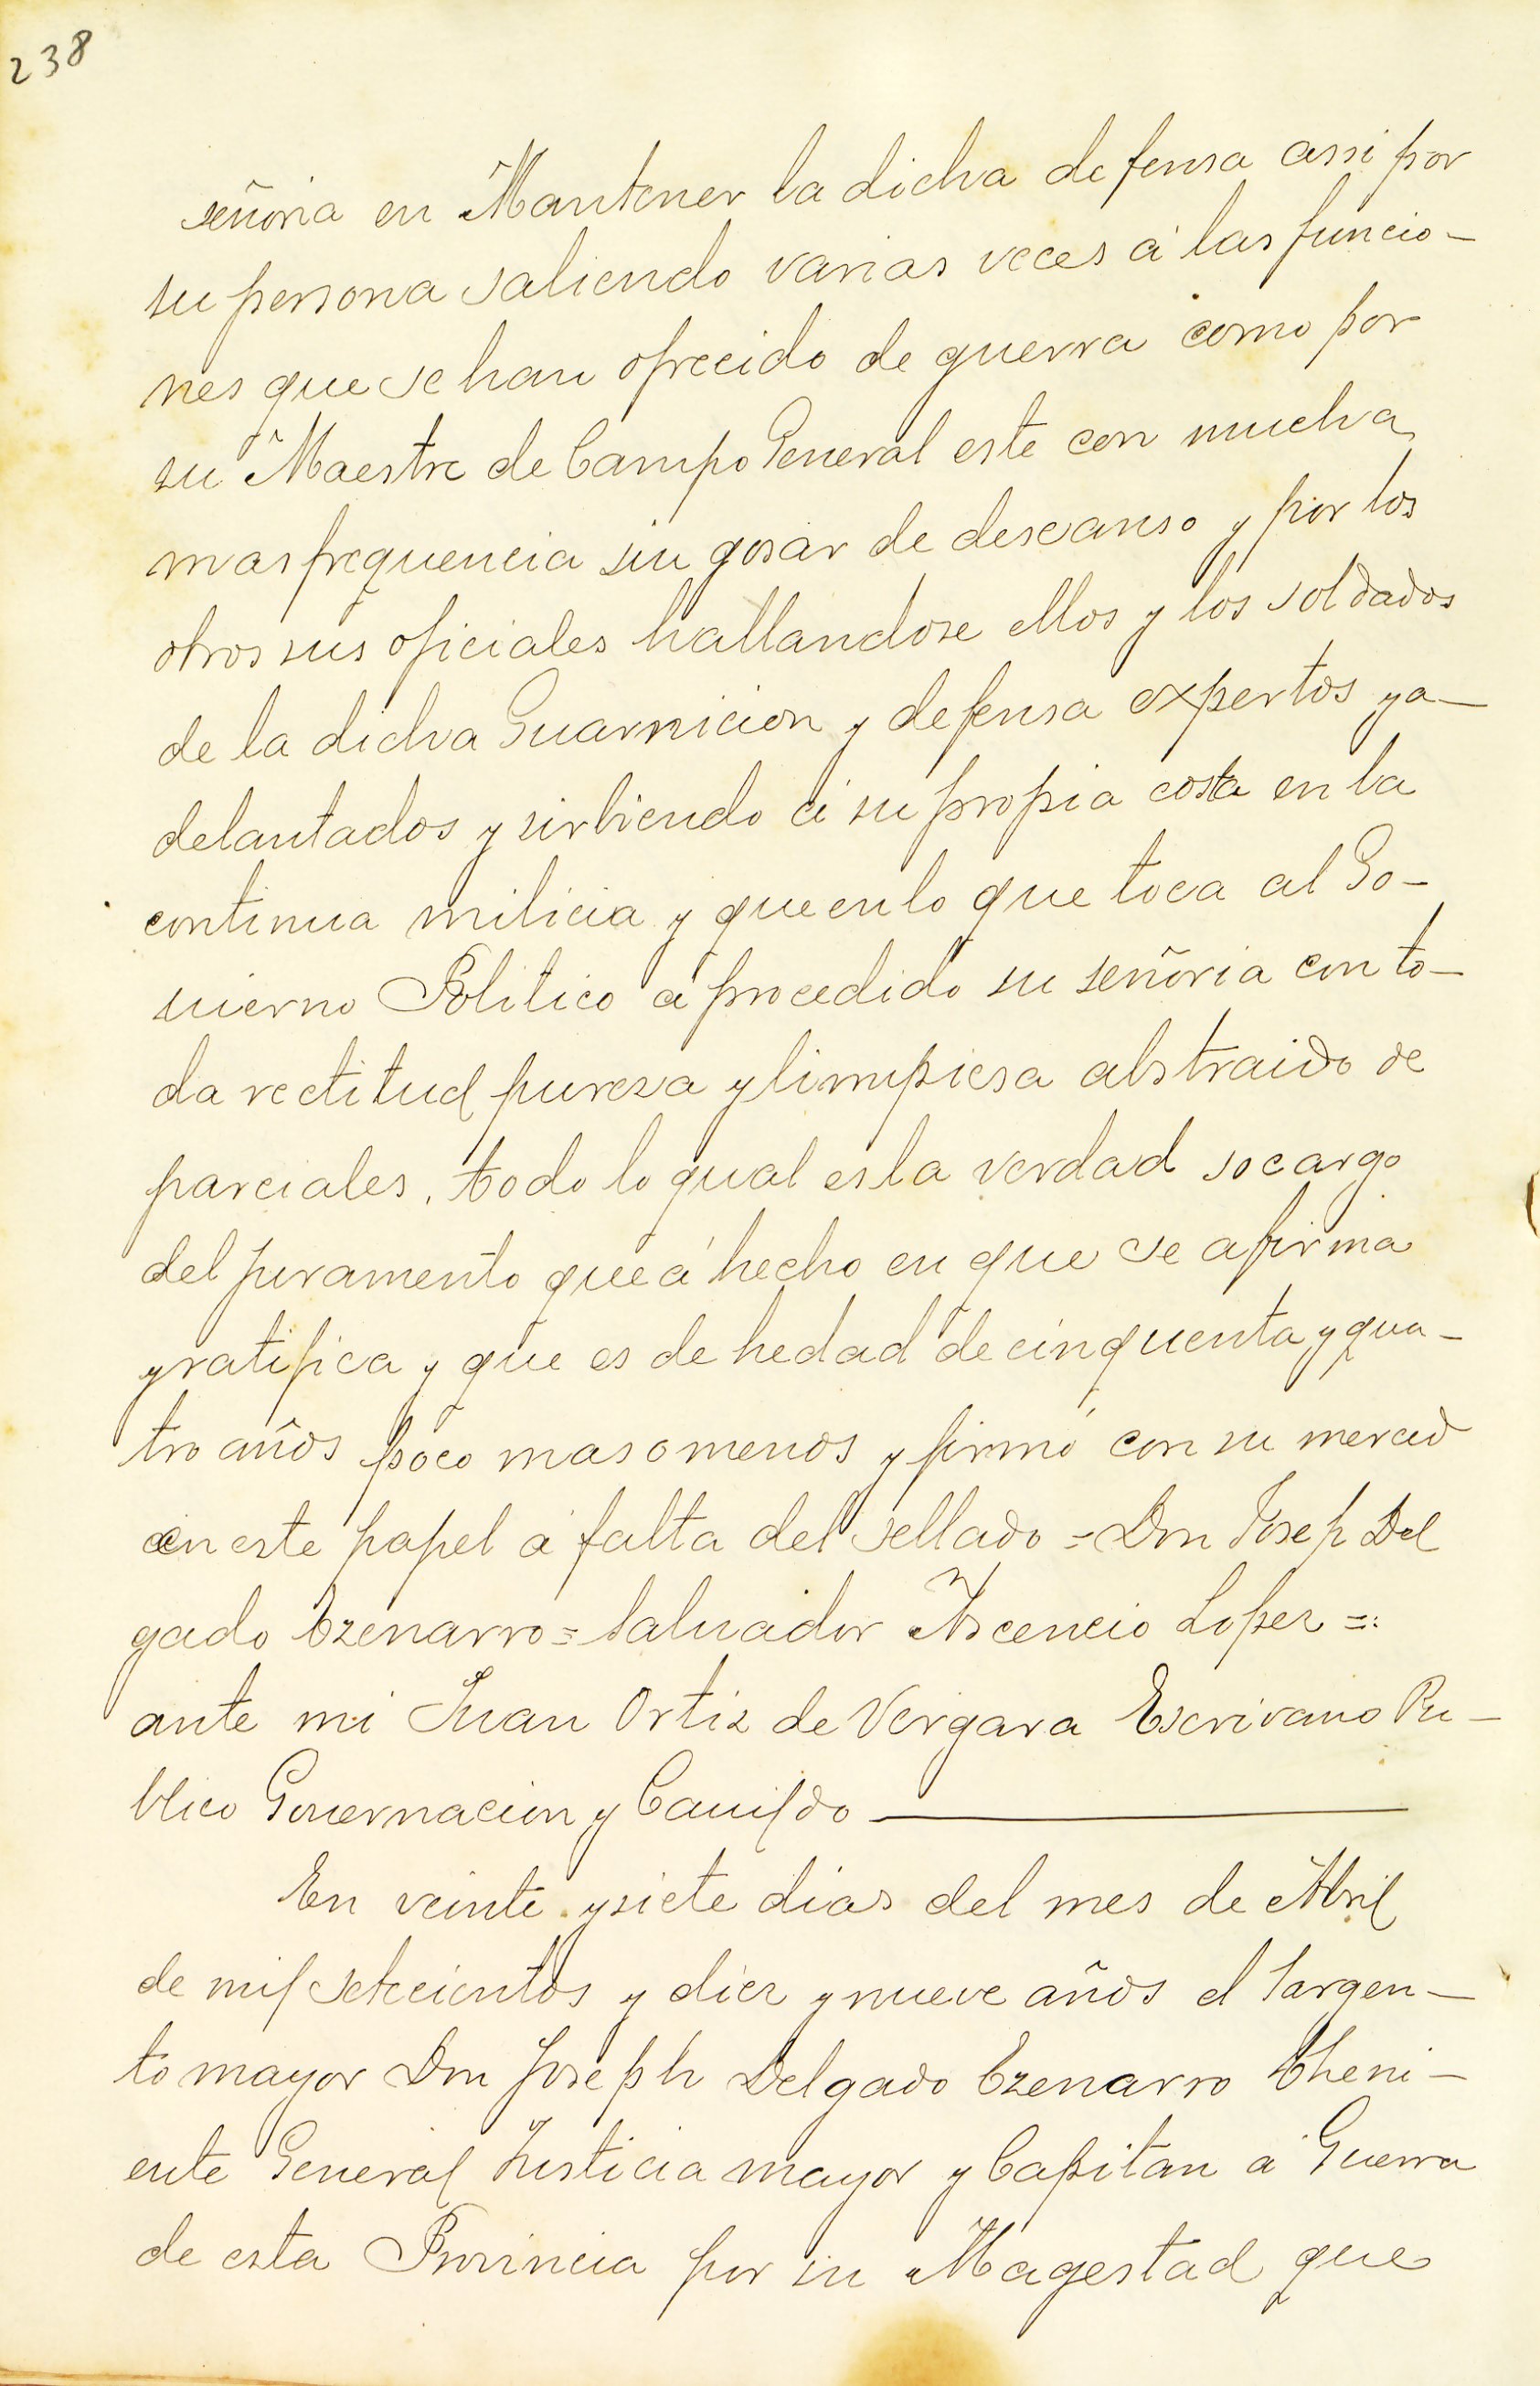 238
señoria en Mantener la dicha defensa assi por
su persona saliendo varias veces á las funcio-
nes que se han ofrecido de guerra como por
su Maestre de Campo General este con mucha
mas frequencia sin gosar de descanso y por los
otros sus oficiales hallandose ellos y los soldados
de la dicha Guarnicion y defensa expertos ya-
delantados y sirbiendo á su propia costa en la
continua milicia y que en lo que toca al Go-
uierno Politico á procedido su señoria con to-
da rectitud puresa y limpiesa abstraido de
parciales. todo lo qual es la verdad socargo
del juramento que á hecho en que se afirma
y ratifica y que es de hedad de cinquenta y qua-
tro años poco mas o menos y firmó con su merced
en este papel á falta del sellado = Don Josep Del
gado Ezenarro = Saluador Ascencio Lopez =
ante mi Juan Ortiz de Vergara Escrivano Pu-
blico Gouernacion y Cauildo
En veinte y siete dias del mes de Abril
de mil setecientos y diez y nueve años el Sargen-
to mayor Don Joseph Delgado Ezenarro Theni-
ente General Justicia mayor y Capitan á Guerra
de esta Provincia por su Magestad que